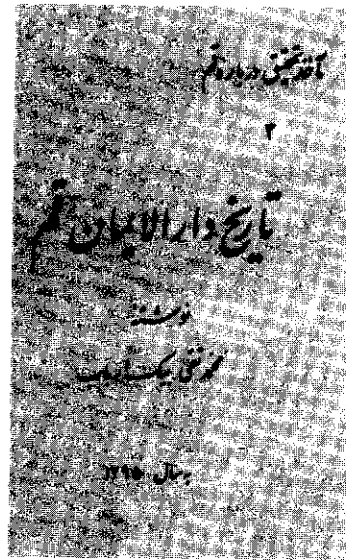 مآخذ تحقیق درباره قم
۲
تاریخ دارالایمان قم
نوشته
محمد تقی بیک ارباب
بسال ۱۲۹۵